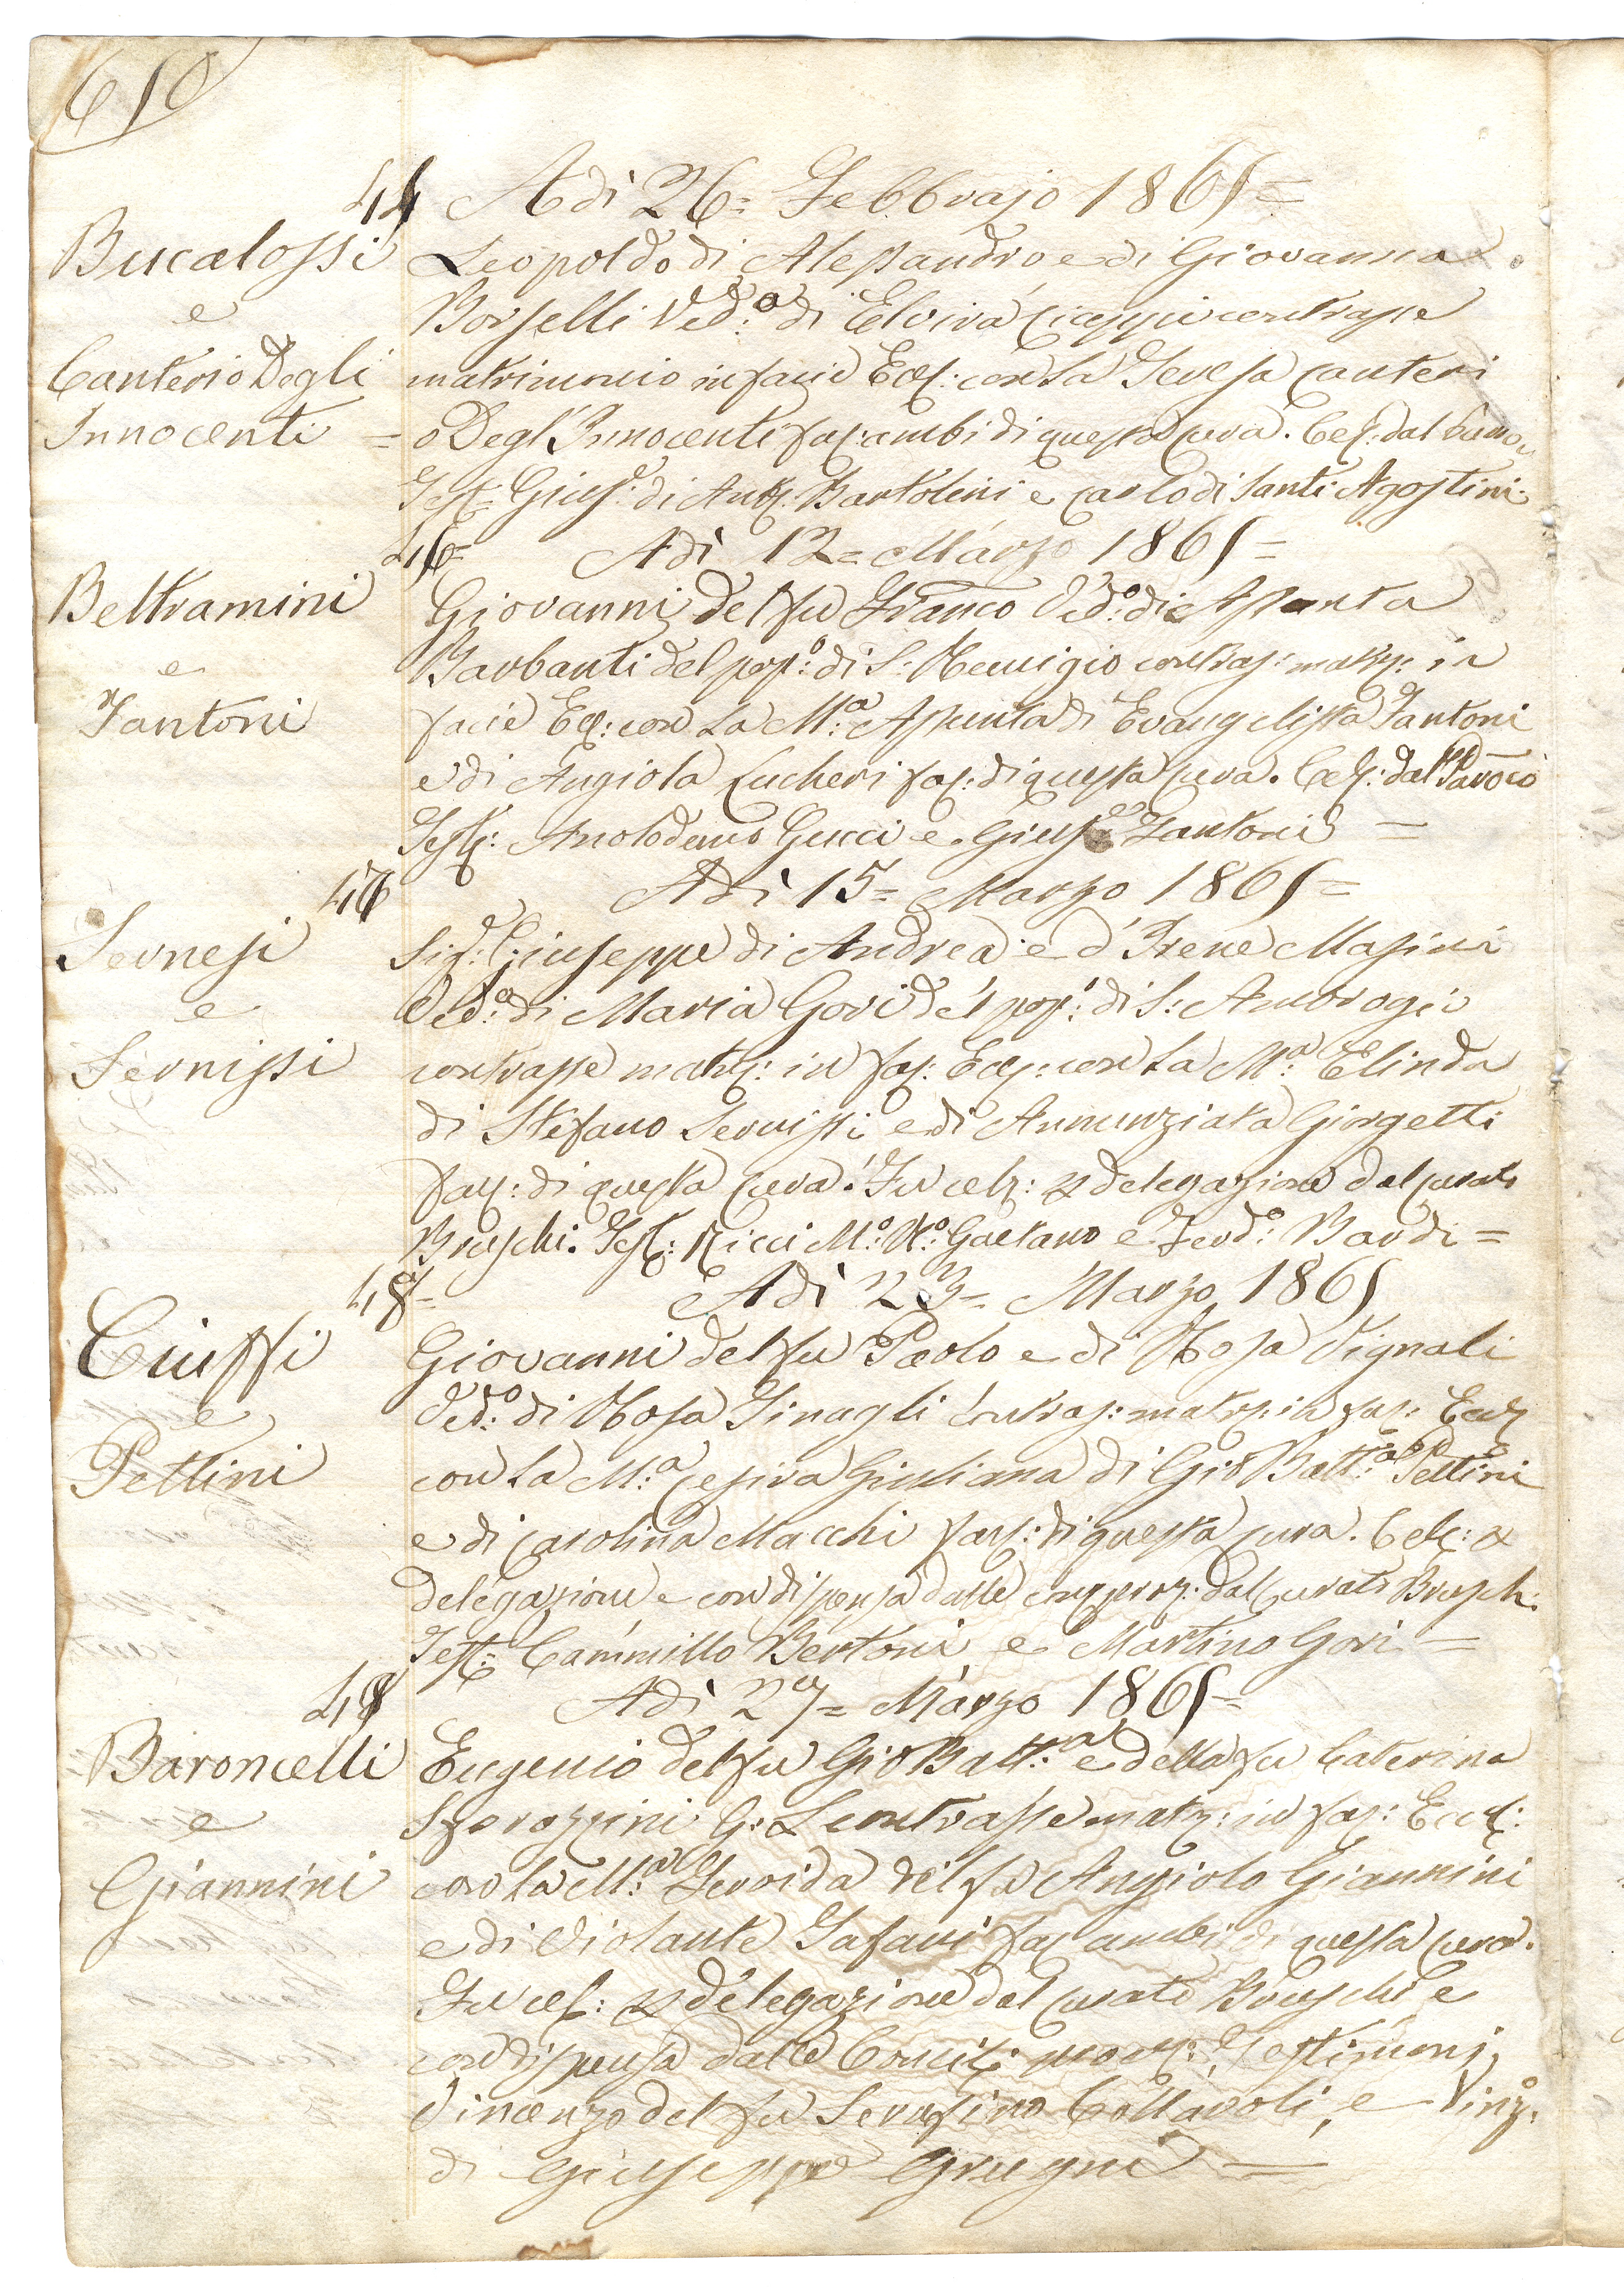 610
44 Adì 26= Febbrajo 1861=
Bucalossi
e
Canteri o Degli
Innocenti =
Leopoldo di Alessandro e di Giovanna
Borselli Ved:o di Elvira Ciappi contrasse
matrimonio in facie Eccl: con la Teresa Canteri
o Degl'Innocenti faz: ambi di questa cura. Cel: dal
Test: Gius:e di Ant: Bartolini e Carlo di Santi Agostini.
Adì 12= Marzo 1861=
Beltramini
e
Fantoni
Giovanni del fu Franco Ved:o di Assunta
Barbanti del pop:o di S: Remigio contras: matr: in
facie Eccl: con la M:a Assunta di Evangelista Fantoni
e di Angiola Lucheri faz: di questa cura. Cel: dal Parōco
Test: Gucci e Gius:e Fantoni =
Adì 15= Marzo 1861=
Sernesi
e
Sernissi
Sig: Giuseppe di Andrea e d'Irene Masini
Ved:o di Maria Gori del pop:o di S: Ambrogio
contrasse matr: in fac: Eccl: con la M:a Elinda
di Stefano Sernissi e di Annunziata Giorgetti
faz: di questa cura. Fu cel: delegazione dal curato
Bruschi. Test: Ricci M:o N:o Gaetano e Ferd:o Bardi =
Adì 23= Marzo 1861
Ciuffi
e
Pettini
Giovanni del fu Paolo e di Rosa Vignali
Ved:o di Rosa Sinagli Contras: matr: in fac: Eccl
con la M:a Cesira Giuliana di Gio Batt:a Pettini
e di Carolina Macchi faz: di questa cura. Cel:
delegazione e con dispensa dalle dal Curato Brusch:
Test: Cammillo Bertoni e Martino Gori =
Adì 27= Marzo 1861=
Baroncelli
e
Giannini
Eugenio del fu Gio Batt:a e della fu Caterina
Sforazzini G: L contrasse matr: in fac: Eccl:
con la M:a Fervida del fu Angiolo Giannini
e di Violante Tafani faz ambi di questa cura.
Fu cel: delegazione dal curato Bruschi e
con dispensa dalle Testimonj
Vincenzo del fu Serafino Collavoli, e Vinz:o
di Giuseppe Grugni =